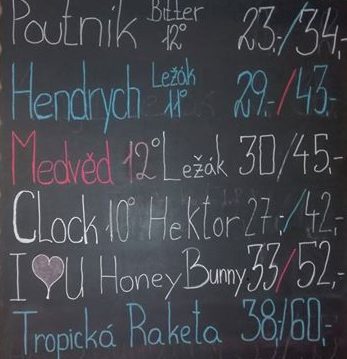 Poutník Bitter 12° 23,-/34,-
Hendrych Ležák 11° 29,-/43,-
Medvěd 12° Ležák 30/45,-
CLock 10° Hektor 27,-/42,-
I ♥ U Honey Bunny 33/52,-
Tropická Raketa 38/60,-